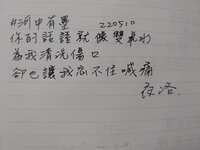 #河中有墨 220510
你的話語就像雙氧水
為我清洗傷口
卻也讓我忍不住喊痛